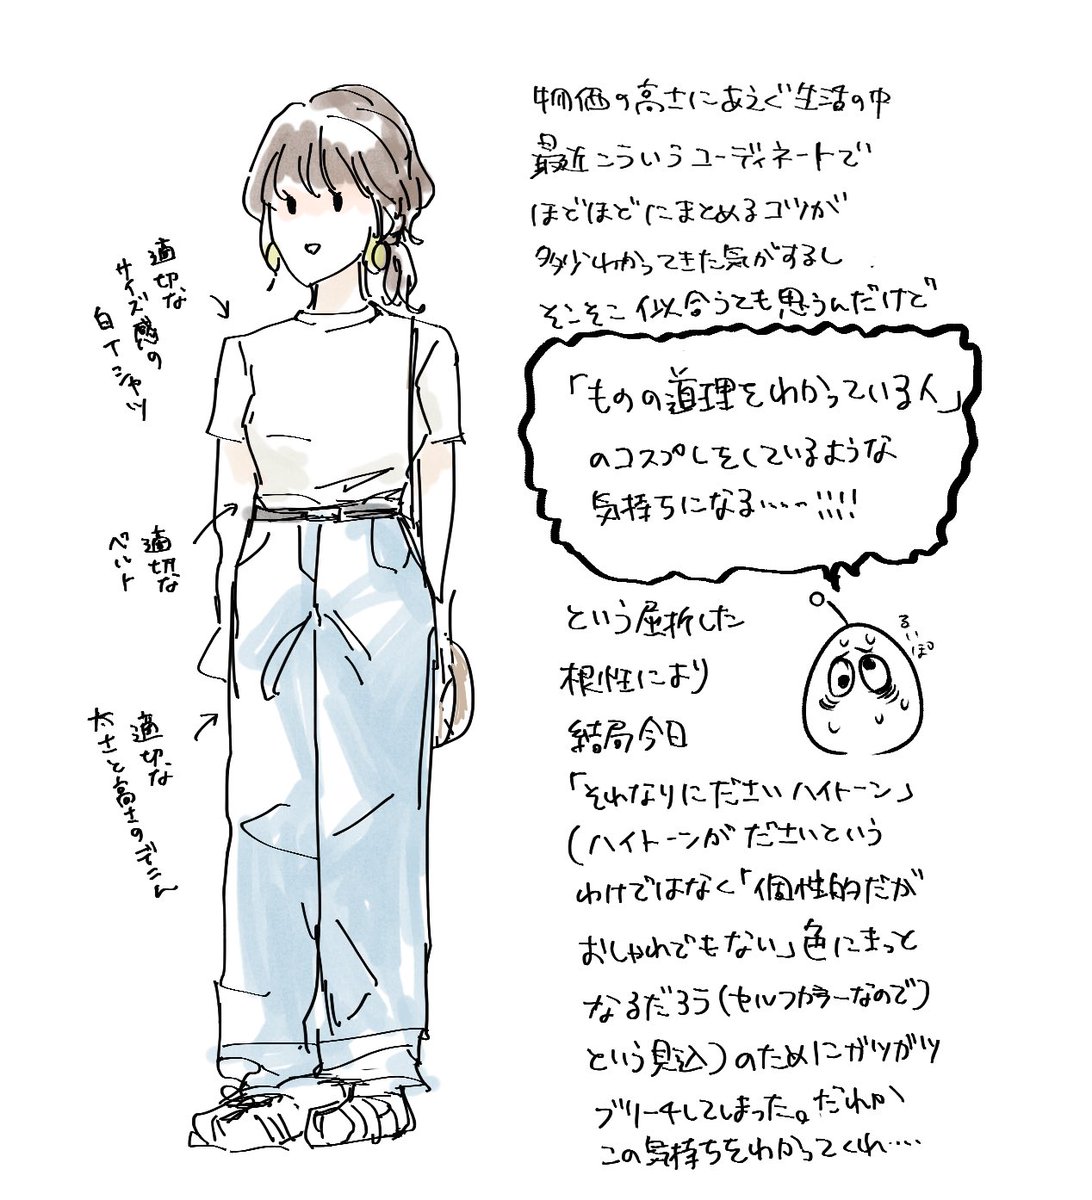 物価の高さにあえぐ生活の中
最近こういうコーディネートで
ほどほどにまとめるコツが
多少わかってきた気がするし
そこそこ似合うても思うんだけど
「ものの道理をわかっている人」
のコスプレをしているような
気持ちになる……っ!!!!
という屈折した
根性により
結局今日
「それなりにださいハイトーン」
(ハイトーンがださいという
わけではなく「個性的だが
おしゃれでもない」色にきっと
なるだろう(セルフカラーなので)
という見込)のためにガツガツ
ブリーチしてしまった。だれか
この気持ちをわかってくれ‥‥
るいぽ
適切な
サイズ感の
白Tシャツ
適切な
ベルト
適切な
太さと高さのデニム